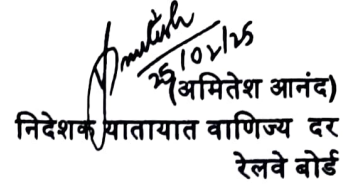 Amitesh
25/02/25
(अमितेश आनंद)
निदेशक यातायात वाणिज्य दर
रेलवे बोर्ड